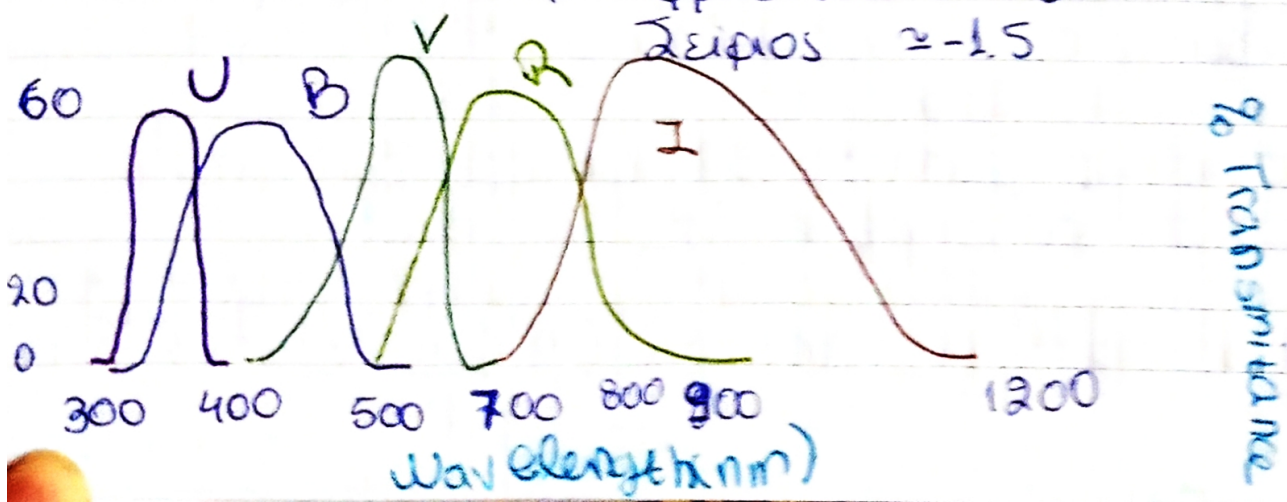 Σείριος ≃ -1.5
U B V R
I
60
20
0
300 400 500 700 800 900 1200
Wavelength(nm)
% Transmitance